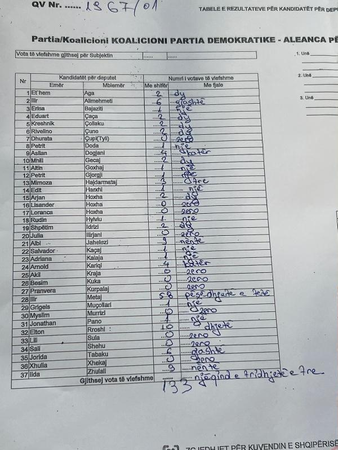 QV Nr. 1367/01
TABELE E REZULTATEVE PËR KANDIDATËT PËR DEPU
Partia/Koalicioni KOALICIONI PARTIA DEMOKRATIKE - ALEANCA PË
Vota të vlefshme gjithsej për Subjektin
1. Unë
2. Unë
3. Unë
Nr Kandidatët për deputet Numri i votave të vlefshme
Emër Mbiemër Me shifër Me fjalë
1 Et'hem Aga 2 dy
2 Ilir Alimehmeti 6 gjashtë
3 Erisa Bajaziti 1 një
4 Eduart Çaça 2 dy
5 Kreshnik Çollaku 2 dy
6 Rivelino Çuno 2 dy
7 Dhurata Çupi(Tyli) 0 zero
8 Petrit Doda 1 një
9 Astian Dogjani 4 katër
10 Mhill Gecaj 2 dy
11 Altin Goxhaj 1 një
12 Petrit Gjorgji 1 një
13 Mimoza Hajdarmataj 3 tre
14 Edit Harxhi 1 një
15 Arjan Hoxha 2 dy
16 Lisander Hoxha 0 zero
17 Lorenca Hoxha 0 zero
18 Rudin Hylviu 1 një
19 Shpëtim Idrizi 2 dy
20 Julia Ilirjani 0 zero
21 Albi Jahelezi 9 nëntë
22 Salvador Kaçaj 1 një
23 Adriana Kalaja 1 një
24 Arnold Kariqi 4 katër
25 Akil Kraja 0 zero
26 Besim Kuka 0 zero
27 Pranvera Kurpalaj 0 zero
28 Ilir Metaj 58 pesëdhjetë e tetë
29 Grigela Mugollari 1 një
30 Myslim Murrizi 0 zero
31 Jonathan Pano 1 një
32 Elton Rroshi 10 dhjetë
33 Lili Sula 0 zero
34 Sali Shehu 0 zero
35 Jorida Tabaku 6 gjashtë
36 Xhulia Xhekaj 0 zero
37 Ilda Zhulali 9 nëntë
Gjithsej vota të vlefshme 133 njëqind e tridhjetë e tre
ZGJEDHJET PËR KUVENDIN E SHQIPËRISË